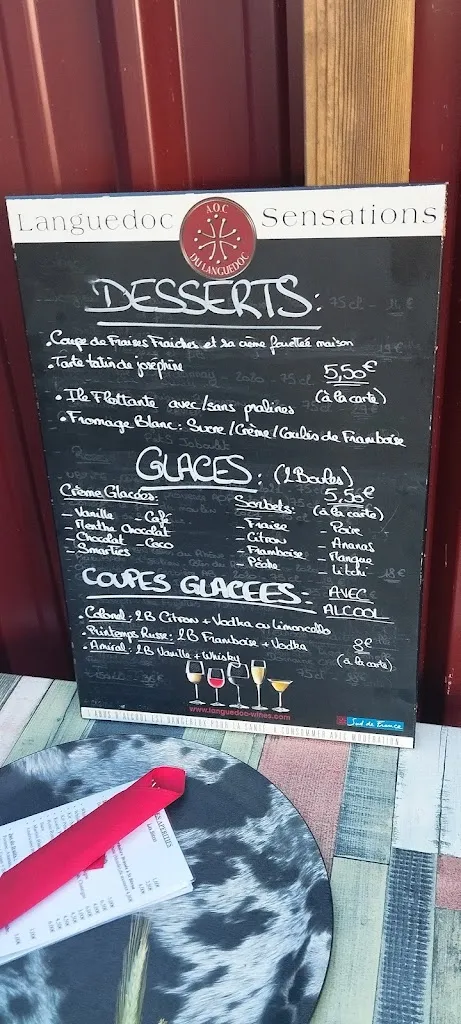 Languedoc Sensations
A.O.C
DU LANGUEDOC
DESSERTS:
• Coupe de Fraises Fraiches et sa crème fouettée maison
• Tarte tatin de joséphine
5,50€
(à la carte)
• Ile Flottante avec/sans pralines
• Fromage Blanc: Sucre/Crème/Coulis de Framboise
GLACES: (2 Boules)
5,50€
(à la carte)
Crème Glacées:
- Vanille - Café
- Menthe Chocolat
- Chocolat - Coco
- Smarties
Sorbets:
- Fraise - Poire
- Citron - Ananas
- Framboise - Mangue
- Pêche - Litchi
COUPES GLACEES - AVEC ALCOOL
• Colonel: 2B Citron + Vodka ou Limoncello
• Printemps Russe: 2B Framboise + Vodka
• Amiral: 2B Vanille + Whisky
8€
(à la carte)
www.languedoc-wines.com
Sud de France
L'ABUS D'ALCOOL EST DANGEREUX POUR LA SANTÉ À CONSOMMER AVEC MODÉRATION